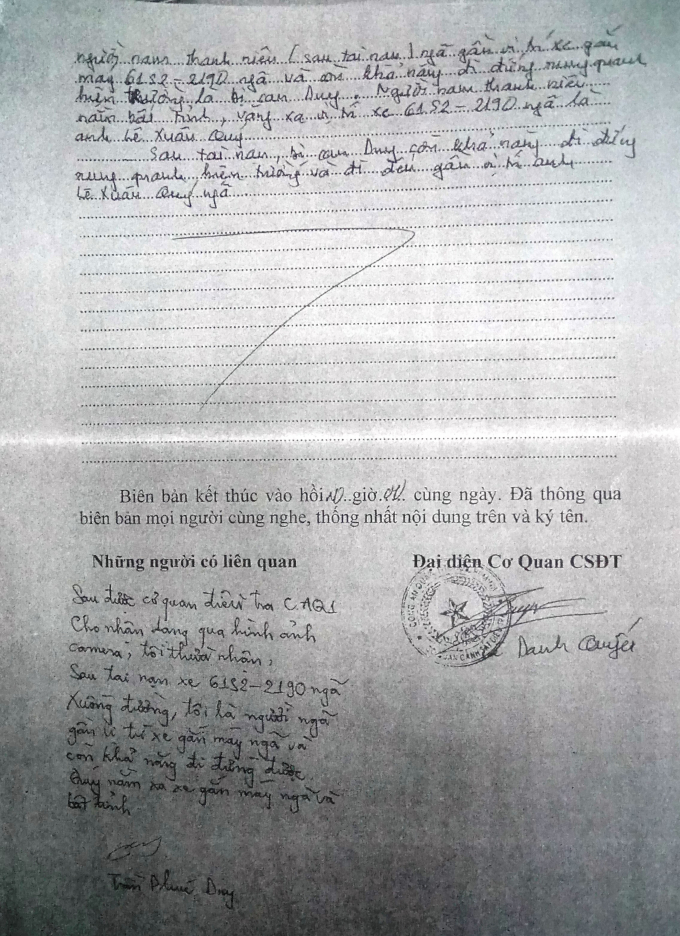 người nam thanh niên (sau tai nạn) ngã gần vị trí xe gắn
máy 61S2-2190 ngã và còn khả năng đi đứng xung quanh
hiện trường là bị can Duy. Người nam thanh niên
nằm bất tỉnh, văng xa vị trí xe 61S2-2190 ngã là
anh Lê Xuân Quy.
Sau tai nạn, bị can Duy còn khả năng đi đứng
xung quanh hiện trường và đi đến gần vị trí anh
Lê Xuân Quy ngã
Biên bản kết thúc vào hồi giờ cùng ngày. Đã thông qua
biên bản mọi người cùng nghe, thống nhất nội dung trên và ký tên.
Những người có liên quan
Đại diện Cơ Quan CSĐT
Sau được cơ quan điều tra CAQ1
Cho nhận dạng qua hình ảnh
camera, tôi thừa nhận,
Sau tai nạn xe 61S2-2190 ngã
Xuống đường, tôi là người ngã
gần vị trí xe gắn máy ngã và
còn khả năng đi đứng được.
Quy nằm xa xe gắn máy ngã và
bất tỉnh
Danh Quyết
Trần Duy